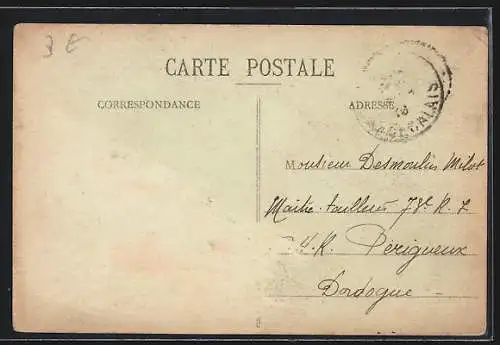 3 €
CARTE POSTALE
CORRESPONDANCE
ADRESSE
PAS DE CALAIS
Monsieur Desmoulin Milot
Maître-tailleur
Périgueux
Dordogne